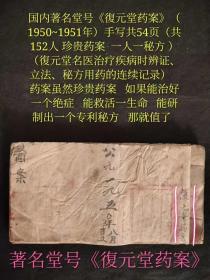 国内著名堂号《復元堂药案》(
1950~1951年)手写共54页(共
152人 珍贵药案 一人一秘方)
(復元堂名医治疗疾病时辨证、
立法、秘方用药的连续记录)
药案虽然珍贵药案 如果能治好
一个绝症 能救活一生命 能研
制出一个专利秘方 那就值了
醫案
公元一九五〇年八月
著名堂号《復元堂药案》